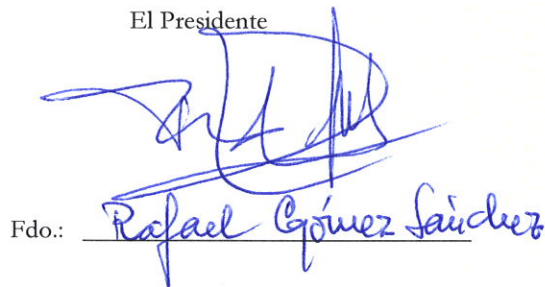 El Presidente
Fdo.: Rafael Gómez Sánchez